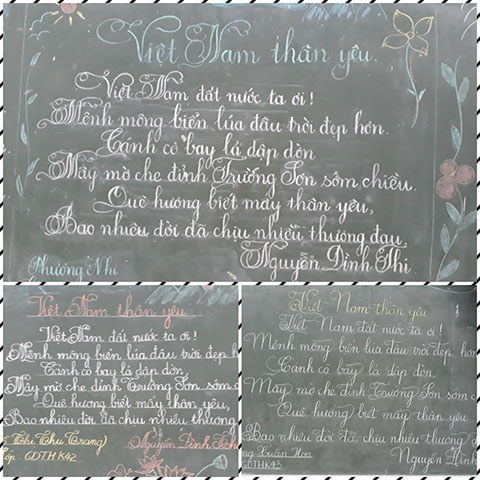 Việt Nam thân yêu.
Việt Nam đất nước ta ơi!
Mênh mông biển lúa đâu trời đẹp hơn.
Cánh cò bay lả dập dờn
Mây mờ che đỉnh Trường Sơn sớm chiều.
Quê hương biết mấy thân yêu,
Bao nhiêu đời đã chịu nhiều thương đau.
Nguyễn Đình Thi.
Phương Nhi
Việt Nam thân yêu
Việt Nam đất nước ta ơi!
Mênh mông biển lúa đâu trời đẹp h
Cánh cò bay lả dập dờn,
Mây mờ che đỉnh Trường Sơn sớm c
Quê hương biết mấy thân yêu,
Bao nhiêu đời đã chịu nhiều thương
Thu Trang) Nguyễn Đình
Lớp CDTH K42
Việt Nam thân yêu
Việt Nam đất nước ta ơi!
Mênh mông biển lúa đâu trời đẹp hơn
Cánh cò bay lả dập dờn,
Mây mờ che đỉnh Trường Sơn sớm c
Quê hương biết mấy thân yêu
Bao nhiêu đời đã chịu nhiều thương đ
ng Xuân Nguyễn Đình
CDTH K42